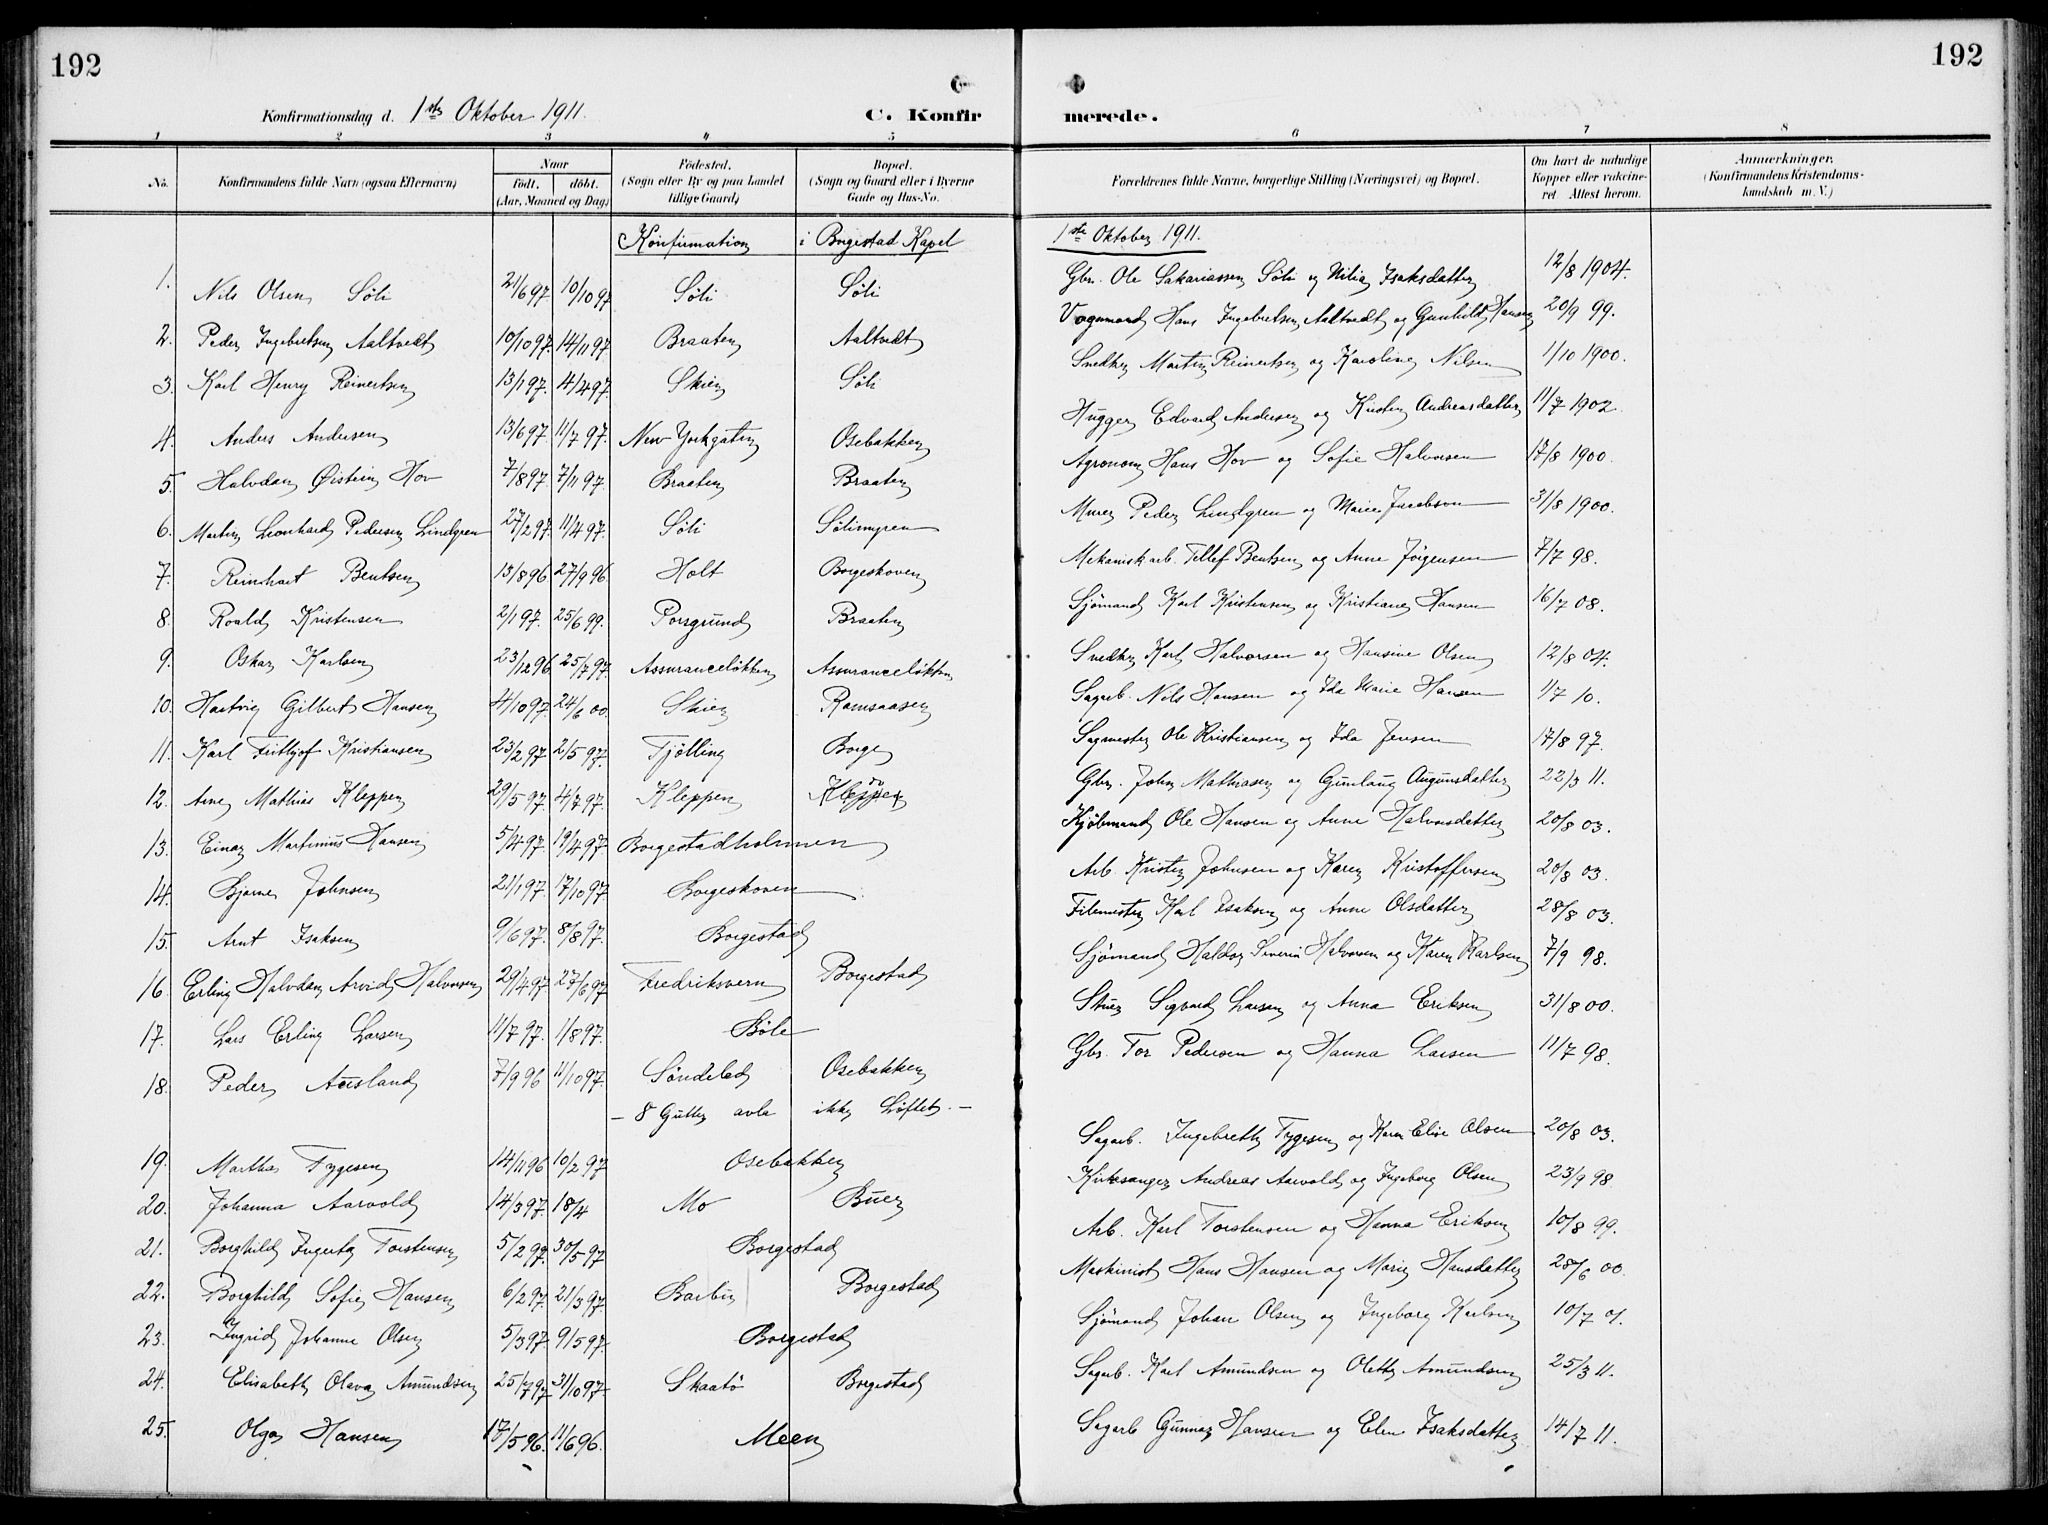 192
192
Konfirmationsdag d. 1ste Oktober 1911.
C. Konfirmerede.
1 2 3 4 5 6 7 8
No.
Konfirmandens fulde Navn (ogsaa Efternavn)
Naar
født. døbt.
(Aar, Maaned og Dag)
Fødested.
(Sogn eller By og paa Landet tillige Gaard)
Bopæl.
(Sogn og Gaard eller i Byerne Gade og Hus-No.
Forældrenes fulde Navne, borgerlige Stilling (Næringsvei) og Bopæl.
Om havt de naturlige Kopper eller vakcineret Attest herom.
Anmærkninger.
(Konfirmandens Kristendomskundskab m. V.)
Konfirmation i Borgestad Kapel 1ste Oktober 1911.
1. Nils Olsen Søli 21/6 97 10/10 97 Søli Søli Gbr. Ole Sakariassen Søli og Nilia Isaksdatter 12/8 1904.
2. Peder Ingebretsen Aaltvedt 10/10 97. 14/11 97 Braaten Aaltvedt Vognmand Hans Ingebretsen Aaltvedt og Gunhild Hansen 20/9 99.
3. Karl Henry Reinertsen 13/1 97. 4/4 97. Skien Søli Snedker Martin Reinertsen og Karoline Nilsen 1/10 1900.
4. Anders Andersen 13/6 97. 11/7 97. New Yorkgaten Osebakken Hugger Edvard Andersen og Kirsten Andreasdatter 11/7 1902.
5. Halvdan Øistein Hov 7/8 97. 7/11 97. Braaten Braaten Agronom Hans Hov og Sofie Halvorsen 17/8 1900.
6. Martin Leonhard Pedersen Lindgren 27/2 97. 11/4 97. Søli Sølimyren Murer Peder Lindgren og Marie Jacobson 31/8 1900.
7. Reinhart Bentsen 13/8 96 27/9 96 Holt Borgeskoven Mekanisk arb. Tellef Bentsen og Anne Jörgensen 7/7 98.
8. Roald Kristensen 2/1 97. 25/6 99. Porsgrund Braaten Sjömand Karl Kristensen og Kristiane Hansen 16/7 08.
9. Oskar Karlsen 23/12 96 25/7 97. Assuranceløkken Assuranceløkken Snedker Karl Halvorsen og Hansine Olsen 12/8 04.
10. Hartvig Gilbert Hansen 4/10 97. 24/6 00. Skien Ramsaasen Sagarb. Nils Hansen og Ida Marie Hansen 1/7 10.
11. Karl Frithjof Kristiansen 23/2 97 2/5 97. Tjølling Borge Sagmester Ole Kristiansen og Ida Jensen 17/8 97.
12. Arne Mathias Kleppen 29/5 97. 4/7 97. Kleppen Kleppen Gbr. John Mathiasen og Gunlaug Augunsdatter 22/3 11.
13. Einar Martinius Hansen 5/4 97. 19/4 97 Borgestadholmen Kjöbmand Ole Hansen og Anne Halvorsdatter 20/8 03.
14. Bjarne Johnsen 21/1 97. 17/10 97. Borgeskoven Arb. Kristen Johnsen og Karen Kristoffersen 20/8 03.
15. Arnt Isaksen 9/6 97. 8/8 97. Borgestad Filemester Karl Isaksen og Anne Olsdatter 28/8 03.
16. Erling Halvdan Arvid Halvorsen 29/4 97 27/6 97 Fredriksvern Borgestad Sjömand Haldor Severin Halvorsen og Karen Karlsen 7/9 98.
17. Lars Erling Larsen 11/7 97. 1/8 97. Bøle Stuer Sigvard Larsen og Anna Eriksen 31/8 00.
18. Peder Ausland 7/9 96 11/10 97. Söndeled Osebakken Gbr. Tor Pedersen og Hanna Larsen 11/7 98.
— 8 Gutter avla ikke Løftet. —
19. Martha Tygesen 14/11 96 10/2 97 Osebakken Sagarb. Ingebreth Tygesen og Karen Elise Olsen 20/8 03.
20. Johanna Aarvold 14/3 97. 18/4 Mo Buer Kirkesanger Andreas Aarvold og Ingeborg Olsen 23/9 98.
21. Borghild Ingerta Torstensen 5/2 97. 30/5 97 Borgestad Arb. Karl Torstensen og Hanna Eriksen 10/8 99.
22. Borghild Sofie Hansen 6/2 97. 21/3 97. Barbu Borgestad Maskinist Hans Hansen og Marie Hansdatter 28/6 00.
23. Ingrid Johanne Olsen 5/3 97. 9/5 97. Borgestad Sjömand Johan Olsen og Ingeborg Karlsen 10/7 01.
24. Elisabeth Olava Amundsen 25/7 97 31/10 97. Skaatö Borgestad Sagarb. Karl Amundsen og Olette Amundsen 25/3 11.
25. Olga Hansen 17/5 96. 11/6 96. Meen Sagarb Gunnar Hansen og Elen Isaksdatter 14/7 11.